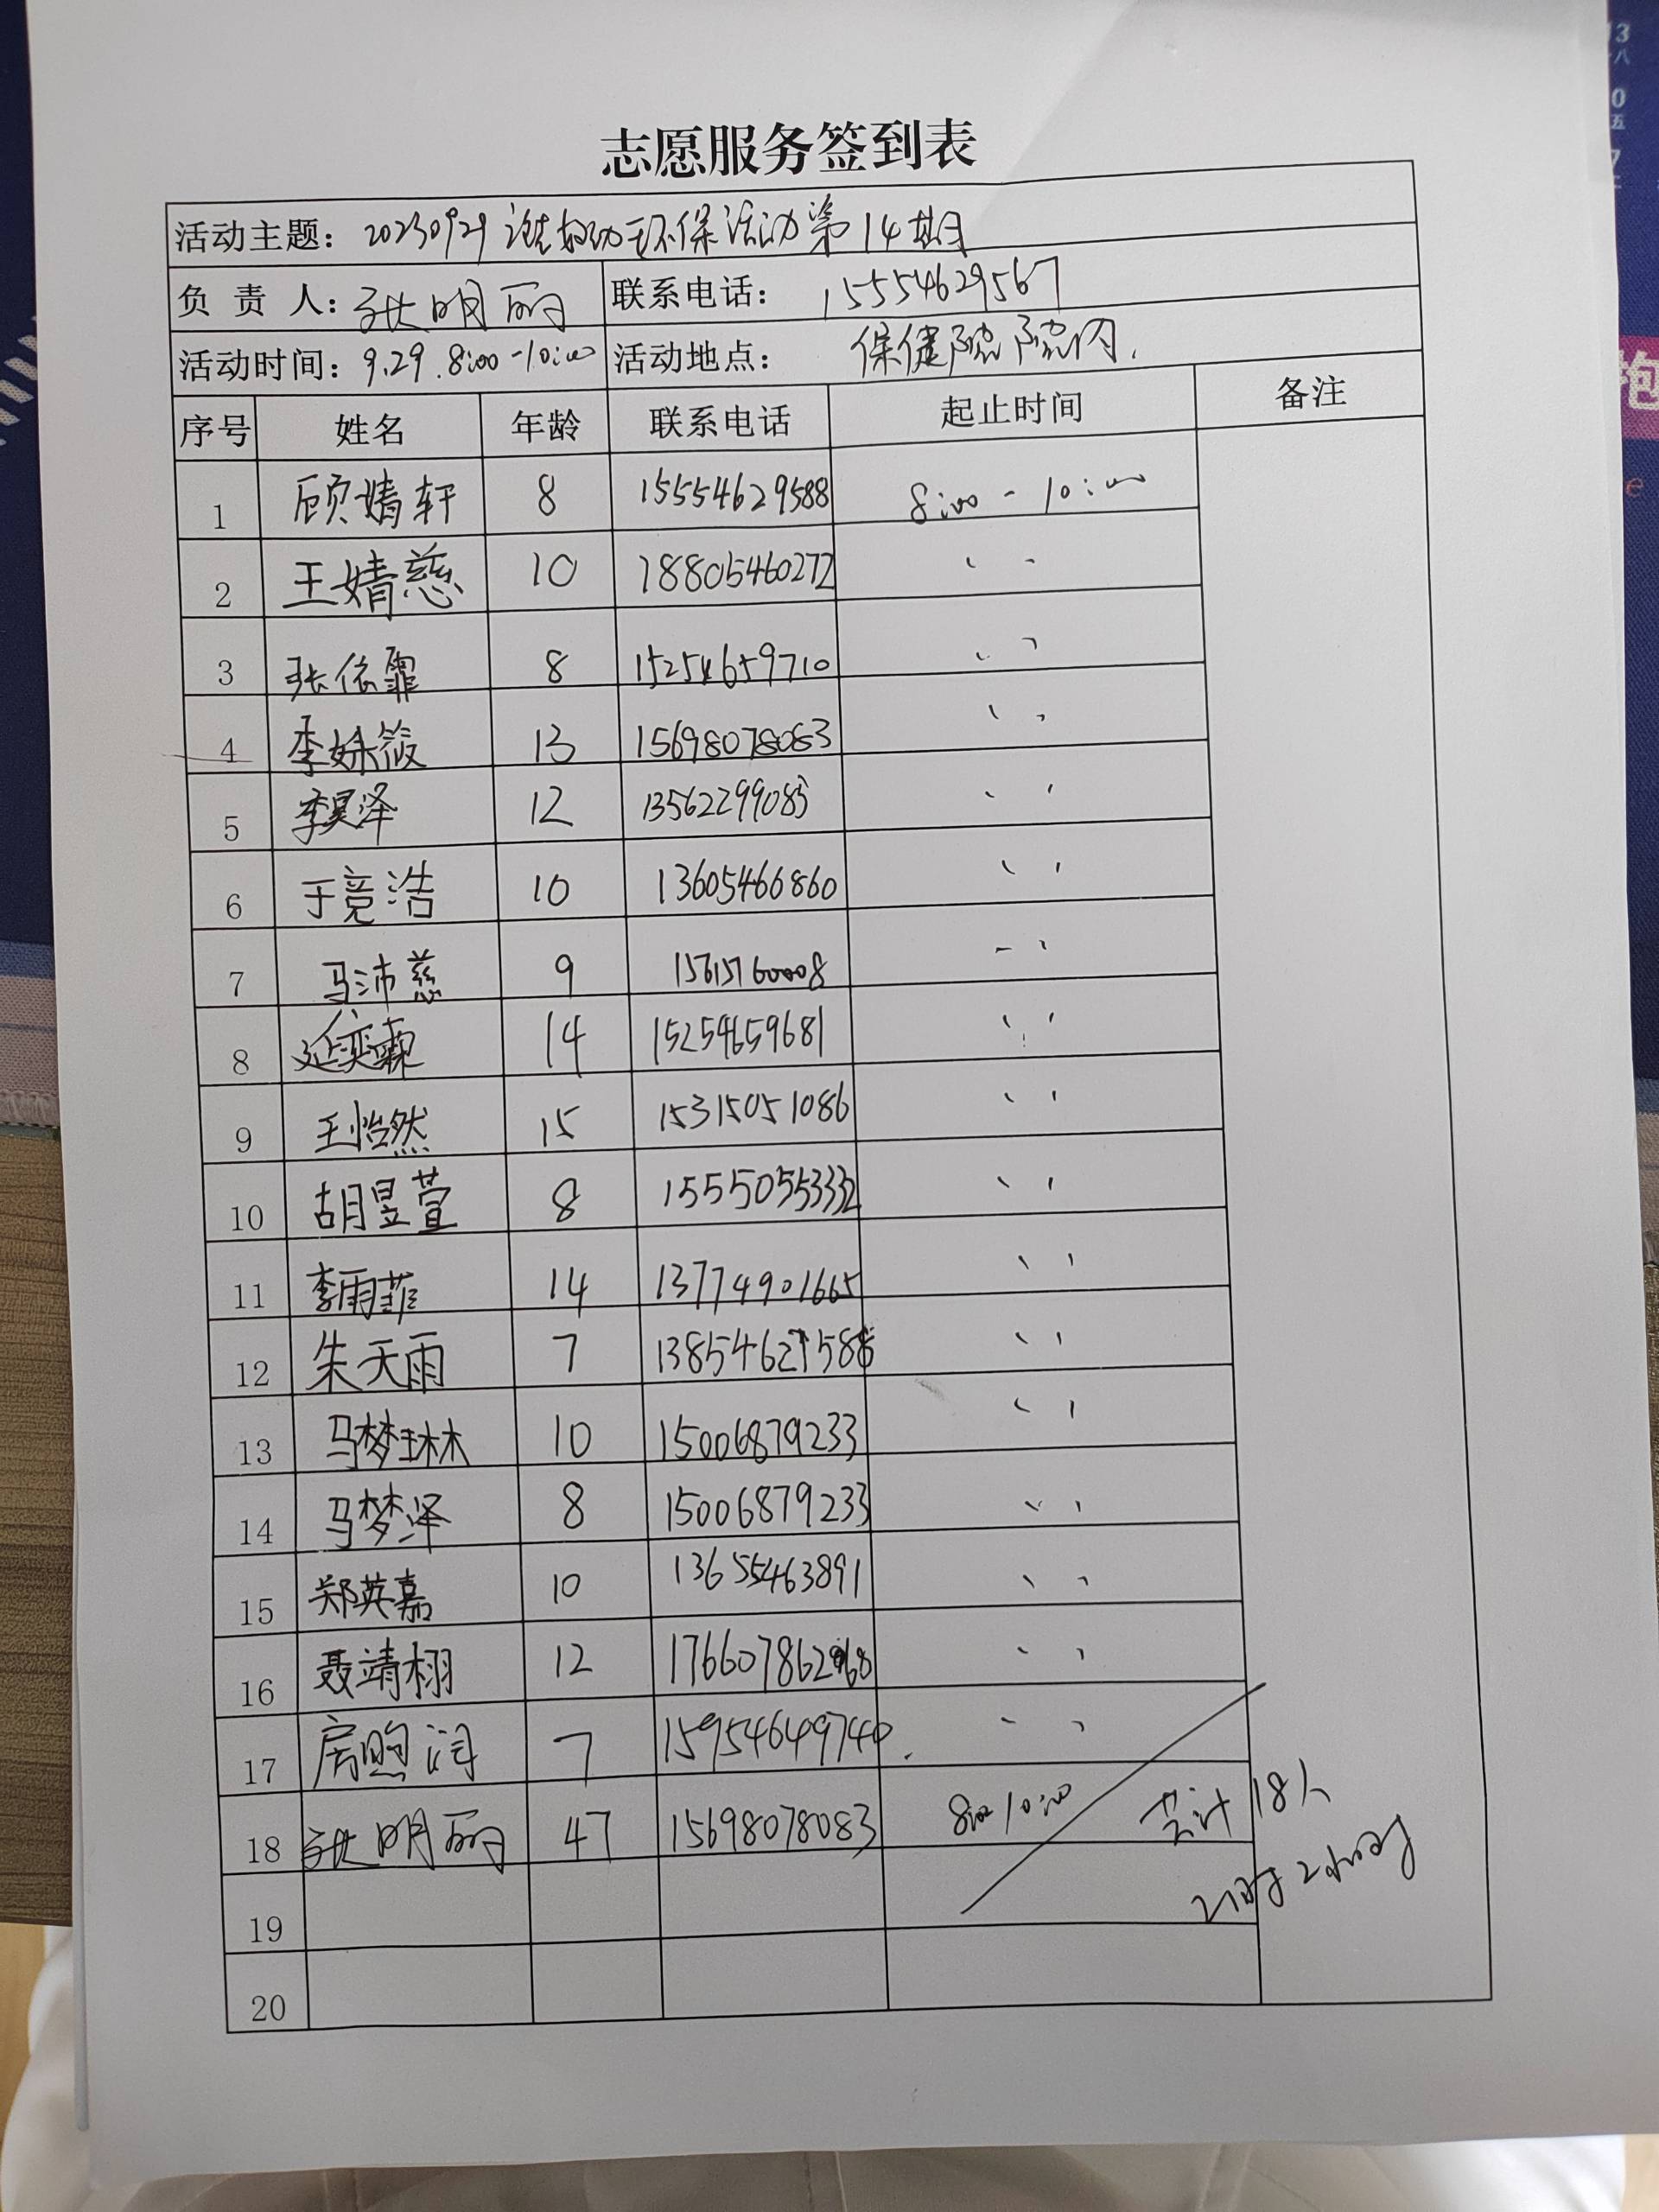 志愿服务签到表
活动主题：20230929 活动 环保活动第14期
负 责 人：张明丽 联系电话：15554629567
活动时间：9.29.8:00-10:00 活动地点：保健院院内.
序号 姓名 年龄 联系电话 起止时间 备注
1 顾婧轩 8 15554629588 8:00-10:00
2 王婧慈 10 18805460272 、、
3 张依霏 8 15254659710 、、
4 李姝筱 13 15698078083 、、
5 李昊泽 12 13562299083 、、
6 于竞浩 10 13605466860 、、
7 马沛慈 9 15615760008 、、
8 延奕霖 14 15254659681 、、
9 王怡然 15 15315051086 、、
10 胡昱萱 8 15550553332 、、
11 李雨菲 14 13774901665 、、
12 朱天雨 7 、、
13 马梦琳 10 15006879233 、、
14 马梦泽 8 15006879233 、、
15 郑英嘉 10 13655463891 、、
16 聂靖栩 12 、、
17 房煦润 7 15954649740. 、、
18 张明丽 47 15698078083 8:00 10:00 共计18人
19 计时2小时
20